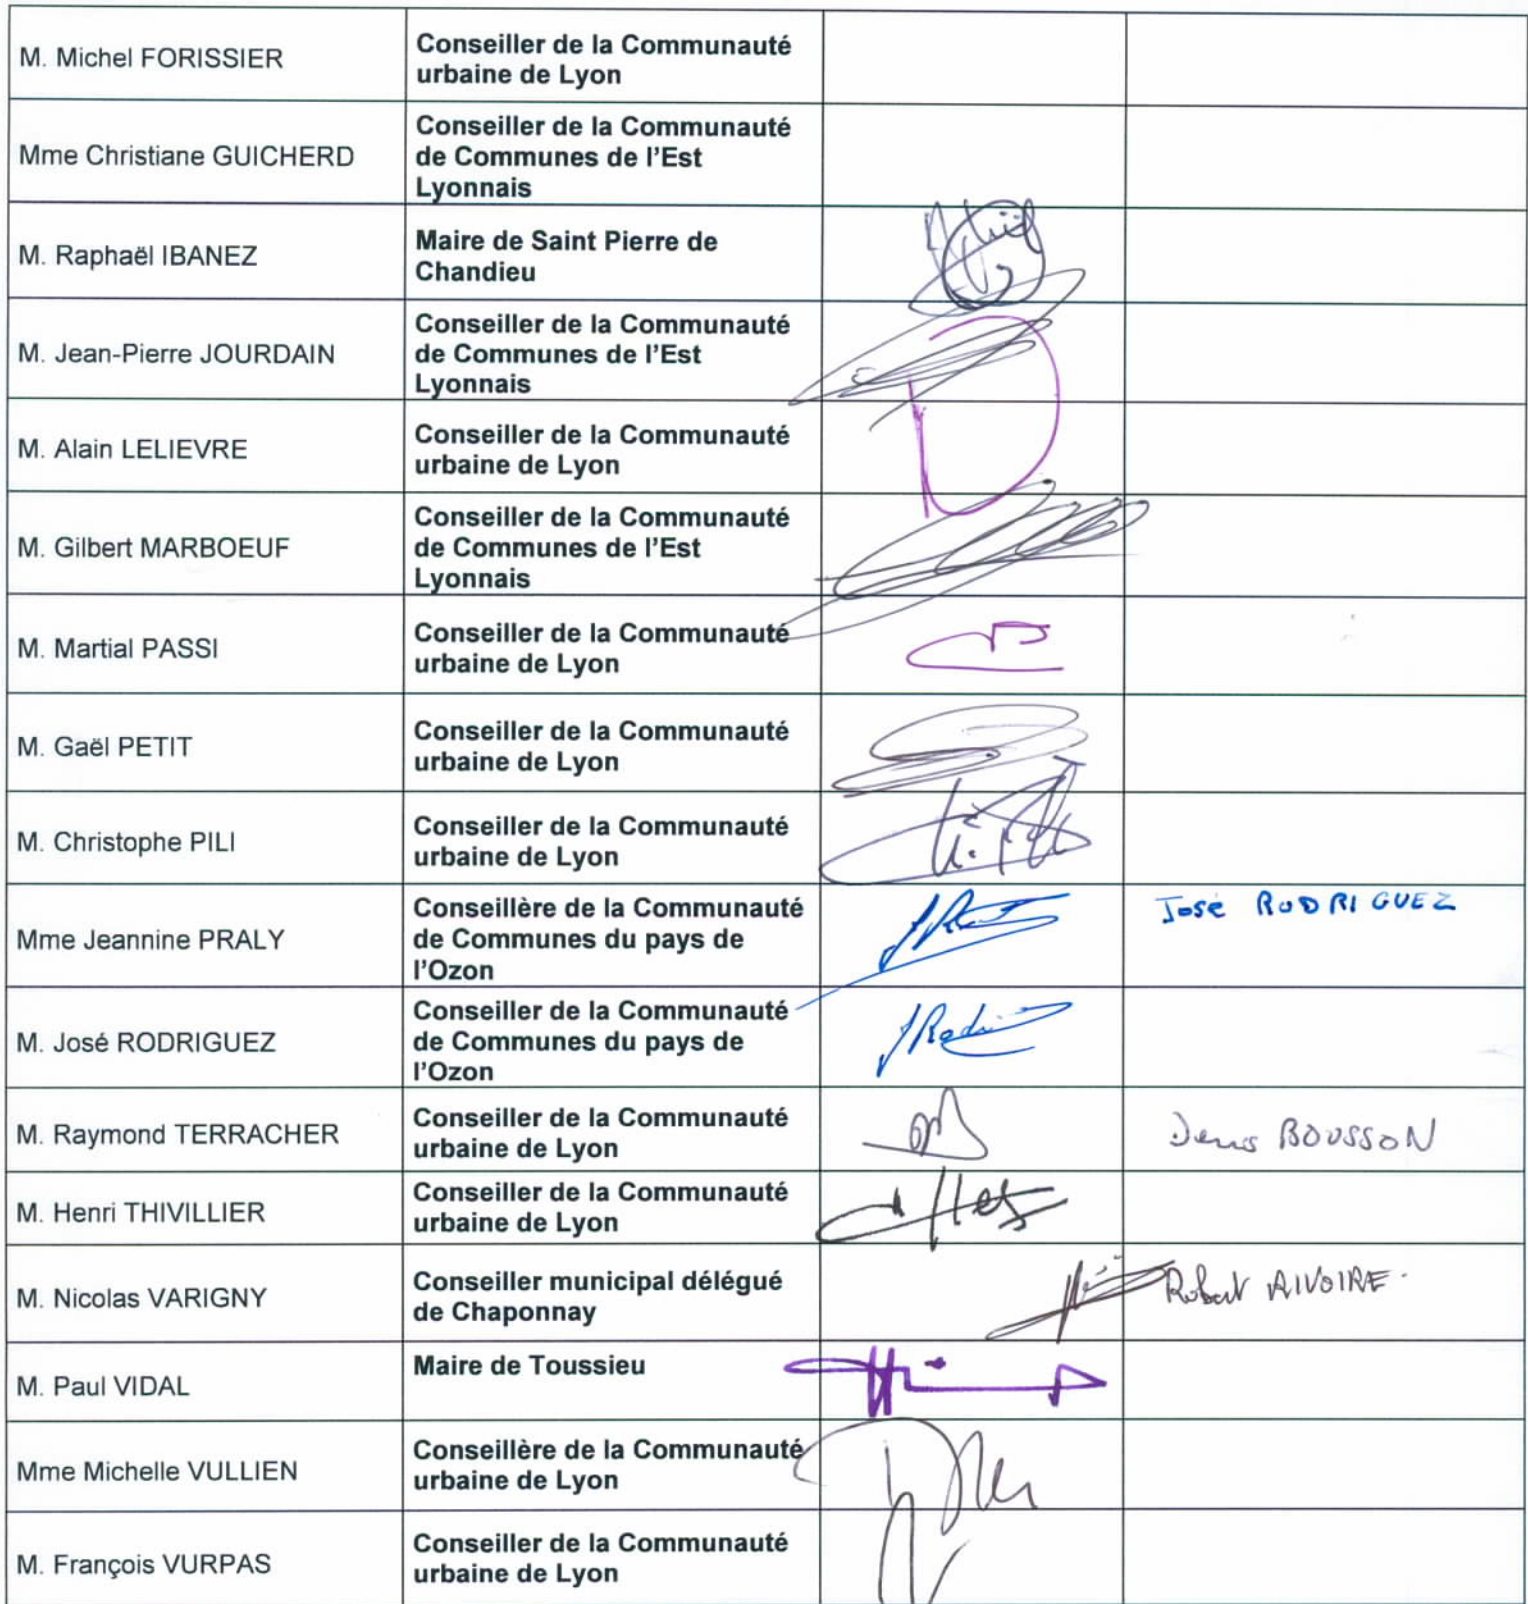 M. Michel FORISSIER
Conseiller de la Communauté
urbaine de Lyon
Mme Christiane GUICHERD
Conseiller de la Communauté
de Communes de l'Est
Lyonnais
M. Raphaël IBANEZ
Maire de Saint Pierre de
Chandieu
M. Jean-Pierre JOURDAIN
Conseiller de la Communauté
de Communes de l'Est
Lyonnais
M. Alain LELIEVRE
Conseiller de la Communauté
urbaine de Lyon
M. Gilbert MARBOEUF
Conseiller de la Communauté
de Communes de l'Est
Lyonnais
M. Martial PASSI
Conseiller de la Communauté
urbaine de Lyon
M. Gaël PETIT
Conseiller de la Communauté
urbaine de Lyon
M. Christophe PILI
Conseiller de la Communauté
urbaine de Lyon
Mme Jeannine PRALY
Conseillère de la Communauté
de Communes du pays de
l'Ozon
José RODRIGUEZ
M. José RODRIGUEZ
Conseiller de la Communauté
de Communes du pays de
l'Ozon
M. Raymond TERRACHER
Conseiller de la Communauté
urbaine de Lyon
Denis BOUSSON
M. Henri THIVILLIER
Conseiller de la Communauté
urbaine de Lyon
M. Nicolas VARIGNY
Conseiller municipal délégué
de Chaponnay
Robert RIVOIRE
M. Paul VIDAL
Maire de Toussieu
Mme Michelle VULLIEN
Conseillère de la Communauté
urbaine de Lyon
M. François VURPAS
Conseiller de la Communauté
urbaine de Lyon